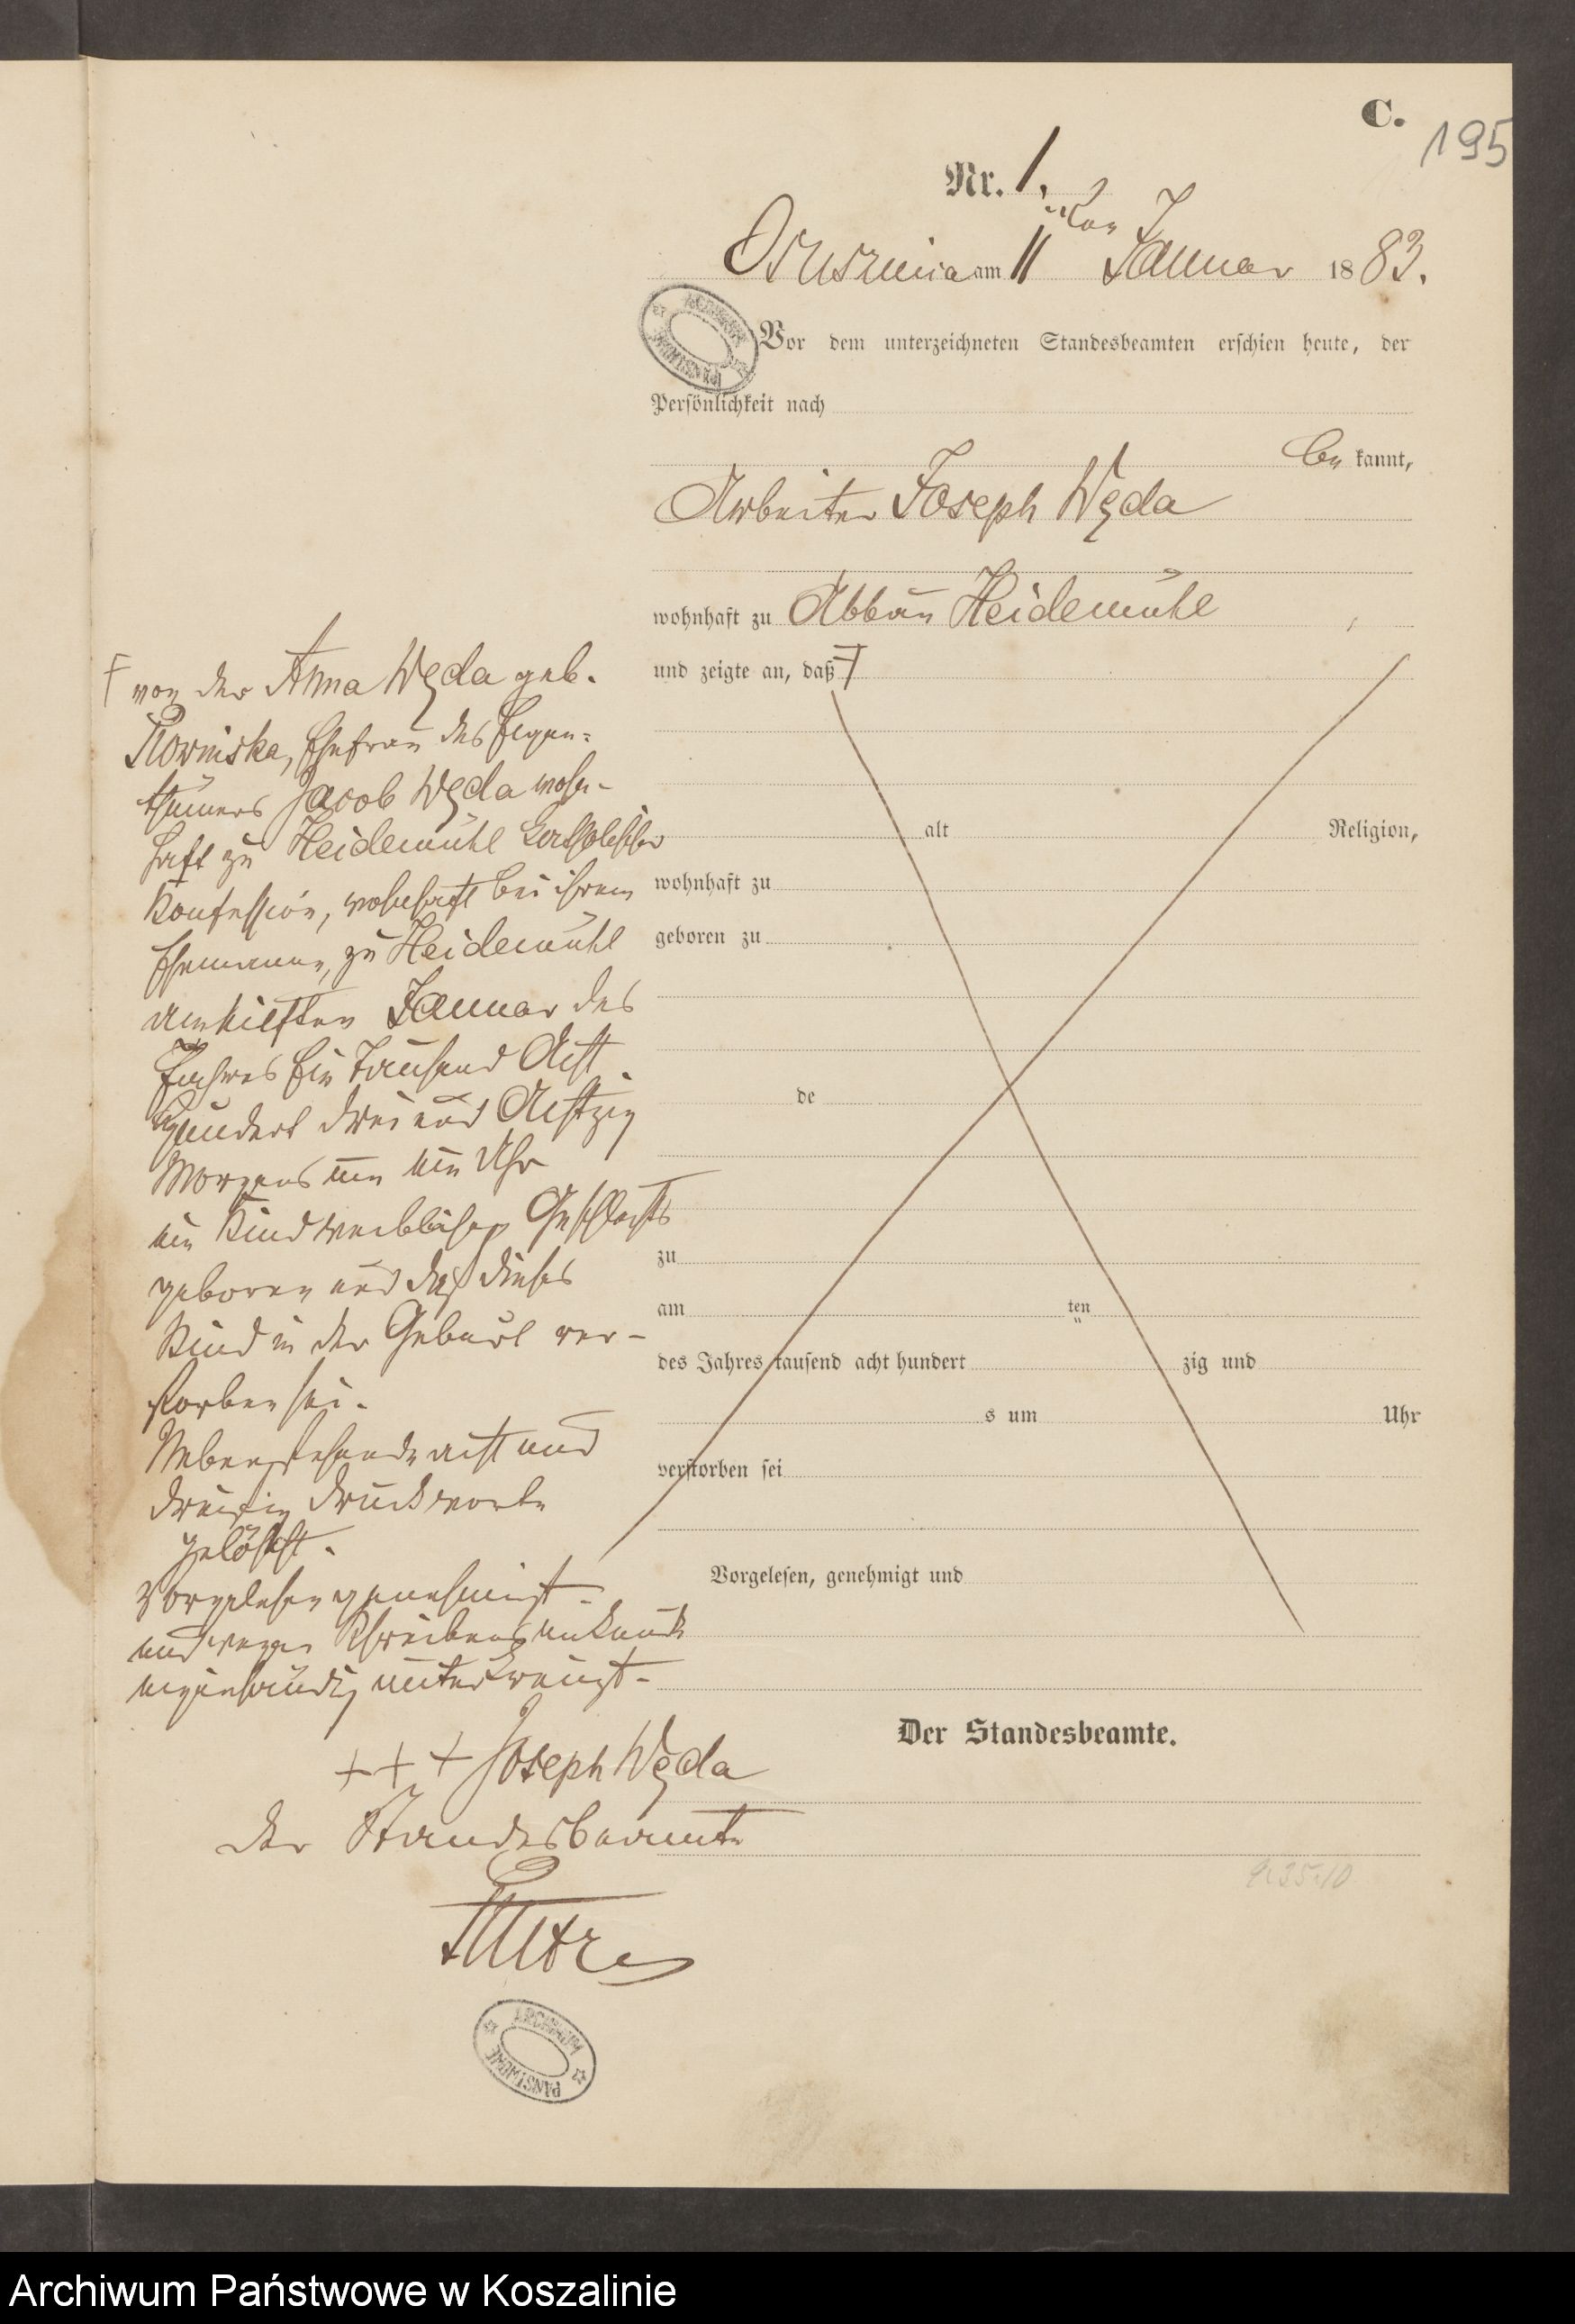 C.
195
Nr. 1.
Ossusznica am 11ten Januar 1883.
Vor dem unterzeichneten Standesbeamten erschien heute, der
Persönlichkeit nach
be kannt,
Arbeiter Joseph Węda
wohnhaft zu Abbau Heidemühl,
und zeigte an, daß F
alt Religion,
wohnhaft zu
geboren zu
de
zu
am ten
des Jahres tausend acht hundert zig und
s um Uhr
verstorben sei
Vorgelesen, genehmigt und
Der Standesbeamte.
F von der Anna Węda geb.
Ehefrau des Eigen=
thümers Jacob Węda wohn-
haft zu Heidemühl katholischer
Konfession, wohnhaft bei ihrem
Ehemanne, zu Heidemühl
am elften Januar des
Jahres Ein Tausend Acht
Hundert drei und Achtzig
Morgens um ein Uhr
ein Kind weiblichen Geschlechts
geboren und daß dieses
Kind in der Geburt ver-
storben sei.
Nebenstehende acht und
dreißig Druckworte
gelöscht.
Vorgelesen genehmigt
und wegen Schreibensunkunde
eigenhändig unterkreuzt-
+ + + Joseph Węda
Der Standesbeamte
ARCHIWUM PAŃSTWOWE
Archiwum Państwowe w Koszalinie